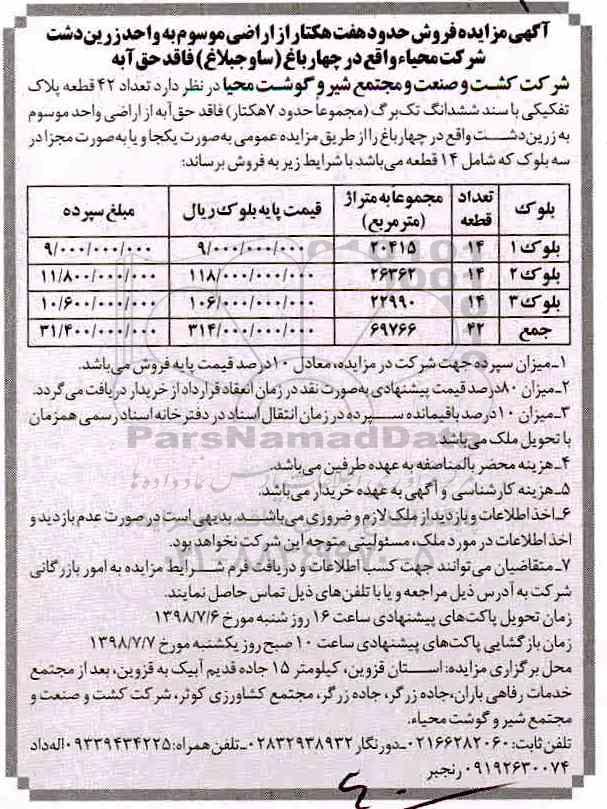 آگهی مزایده فروش حدود هفت هکتار از اراضی موسوم به واحد زرین دشت
شرکت محیاء واقع در چهارباغ (ساوجبلاغ) فاقد حق آبه
شرکت کشت و صنعت و مجتمع شیر و گوشت محیا در نظر دارد تعداد ۴۲ قطعه پلاک
تفکیکی با سند ششدانگ تک‌برگ (مجموعاً حدود ۷هکتار) فاقد حق‌آبه از اراضی واحد موسوم
به زرین‌دشت واقع در چهارباغ را از طریق مزایده عمومی به‌صورت یکجا و یا به‌صورت مجزا در
سه بلوک که شامل ۱۴ قطعه می‌باشد با شرایط زیر به فروش برساند:
بلوک تعداد قطعه مجموعاً به متراژ (مترمربع) قیمت پایه بلوک ریال مبلغ سپرده
بلوک ۱ ۱۴ ۲۰۴۱۵ ۹/۰۰۰/۰۰۰/۰۰۰ ۹/۰۰۰/۰۰۰/۰۰۰
بلوک ۲ ۱۴ ۲۶۳۶۲ ۱۱۸/۰۰۰/۰۰۰/۰۰۰ ۱۱/۸۰۰/۰۰۰/۰۰۰
بلوک ۳ ۱۴ ۲۲۹۹۰ ۱۰۶/۰۰۰/۰۰۰/۰۰۰ ۱۰/۶۰۰/۰۰۰/۰۰۰
جمع ۴۲ ۶۹۷۶۶ ۳۱۴/۰۰۰/۰۰۰/۰۰۰ ۳۱/۴۰۰/۰۰۰/۰۰۰
۱ـ میزان سپرده جهت شرکت در مزایده، معادل ۱۰درصد قیمت پایه فروش می‌باشد.
۲ـ میزان ۸۰درصد قیمت پیشنهادی به‌صورت نقد در زمان انعقاد قرارداد از خریدار دریافت می‌گردد.
۳ـ میزان ۱۰درصد باقیمانده سپرده در زمان انتقال اسناد در دفترخانه اسناد رسمی همزمان
با تحویل ملک می‌باشد.
ParsNamadData
۴ـ هزینه محضر بالمناصفه به عهده طرفین می‌باشد.
۵ـ هزینه کارشناسی و آگهی به عهده خریدار می‌باشد.
۶ـ اخذ اطلاعات و بازدید از ملک لازم و ضروری می‌باشد. بدیهی است در صورت عدم بازدید و
اخذ اطلاعات در مورد ملک، مسئولیتی متوجه این شرکت نخواهد بود.
۷ـ متقاضیان می‌توانند جهت کسب اطلاعات و دریافت فرم شرایط مزایده به امور بازرگانی
شرکت به آدرس ذیل مراجعه و یا با تلفن‌های ذیل تماس حاصل نمایند.
زمان تحویل پاکت‌های پیشنهادی ساعت ۱۶ روز شنبه مورخ ۱۳۹۸/۷/۶
زمان بازگشایی پاکت‌های پیشنهادی ساعت ۱۰ صبح روز یکشنبه مورخ ۱۳۹۸/۷/۷
محل برگزاری مزایده: استان قزوین، کیلومتر ۱۵ جاده قدیم آبیک به قزوین، بعد از مجتمع
خدمات رفاهی باران، جاده زرگر، جاده زرگر، مجتمع کشاورزی کوثر، شرکت کشت و صنعت و
مجتمع شیر و گوشت محیاء.
تلفن ثابت: ۰۲۱۶۶۲۸۲۰۶۰ـ دورنگار ۰۲۸۳۲۹۳۸۹۳۲ـ تلفن همراه: ۰۹۳۳۹۴۳۴۲۲۵اله‌داد
۰۹۱۹۲۶۳۰۰۷۴رنجبر